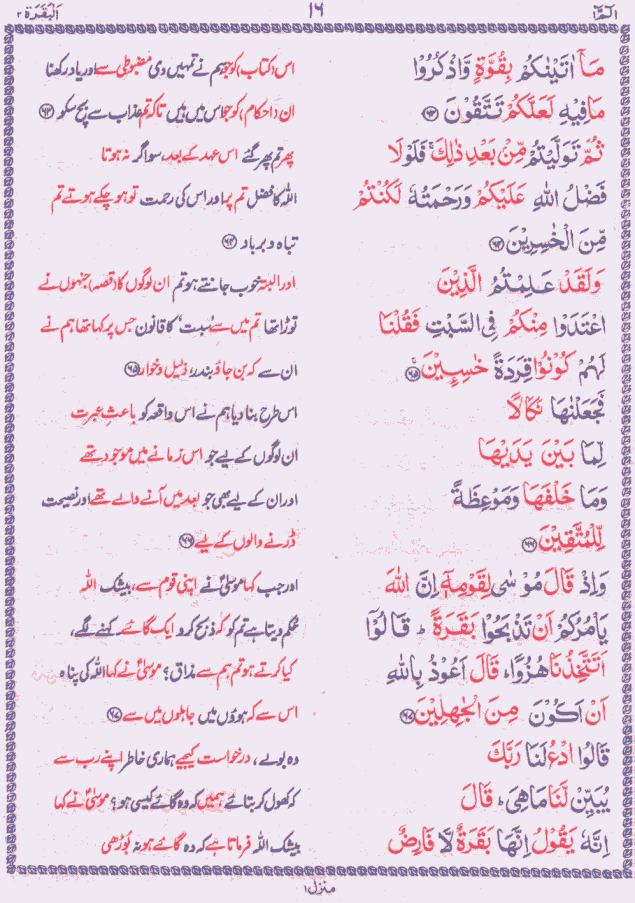 الٓمّٓ ١ ١٦ اَلْبَقَرَة ٢
مَاۤ اٰتَيْنٰكُمْ بِقُوَّةٍ وَّاذْكُرُوْا اس (کتاب) کو جو ہم نے تمہیں دی مضبوطی سے اور یاد رکھنا
مَا فِيْهِ لَعَلَّكُمْ تَتَّقُوْنَ ﴿۶۳﴾ ان (احکام) کو جو اس میں ہیں تاکہ تم عذاب سے بچ سکو ﴿۶۳﴾
ثُمَّ تَوَلَّيْتُمْ مِّنْۢ بَعْدِ ذٰلِكَ ۚ فَلَوْلَا پھر تم پھر گئے اس عہد کے بعد، سو اگر نہ ہوتا
فَضْلُ اللّٰهِ عَلَيْكُمْ وَرَحْمَتُهٗ لَكُنْتُمْ اللہ کا فضل تم پر اور اس کی رحمت تو ہو چکے ہوتے تم
مِّنَ الْخٰسِرِيْنَ ﴿۶۴﴾ تباہ و برباد ﴿۶۴﴾
وَلَقَدْ عَلِمْتُمُ الَّذِيْنَ اور البتہ خوب جانتے ہو تم ان لوگوں کا (قصہ) جنہوں نے
اعْتَدَوْا مِنْكُمْ فِى السَّبْتِ فَقُلْنَا توڑا تھا تم میں سے ’سبت‘ کا قانون جس پر کہا تھا ہم نے
لَهُمْ كُوْنُوْا قِرَدَةً خٰسِـِٕيْنَ ﴿۶۵﴾ۚ ان سے کہ بن جاؤ بندر ذلیل و خوار ﴿۶۵﴾
فَجَعَلْنٰهَا نَكَالًا اس طرح بنا دیا ہم نے اس واقعہ کو باعثِ عبرت
لِّمَا بَيْنَ يَدَيْهَا ان لوگوں کے لیے جو اس زمانے میں موجود تھے
وَمَا خَلْفَهَا وَمَوْعِظَةً اور ان کے لیے بھی جو بعد میں آنے والے تھے اور نصیحت
لِّلْمُتَّقِيْنَ ﴿۶۶﴾ ڈرنے والوں کے لیے ﴿۶۶﴾
وَاِذْ قَالَ مُوْسٰى لِقَوْمِهٖۤ اِنَّ اللّٰهَ اور جب کہا موسیٰؑ نے اپنی قوم سے، بیشک اللہ
يَاْمُرُكُمْ اَنْ تَذْبَحُوْا بَقَرَةً ؕ قَالُوْۤا حکم دیتا ہے تم کو کہ ذبح کرو ایک گائے کہنے لگے،
اَتَتَّخِذُنَا هُزُوًا ؕ قَالَ اَعُوْذُ بِاللّٰهِ کیا کرتے ہو تم ہم سے مذاق؟ موسیٰؑ نے کہا اللہ کی پناہ
اَنْ اَكُوْنَ مِنَ الْجٰهِلِيْنَ ﴿۶۷﴾ اس سے کہ ہوؤں میں جاہلوں میں سے ﴿۶۷﴾
قَالُوا ادْعُ لَنَا رَبَّكَ وہ بولے، درخواست کیجیے ہماری خاطر اپنے رب سے
يُبَيِّنْ لَّنَا مَا هِىَ ؕ قَالَ کہ کھول کر بتائے ہمیں کہ وہ گائے کیسی ہو؟ موسیٰؑ نے کہا
اِنَّهٗ يَقُوْلُ اِنَّهَا بَقَرَةٌ لَّا فَارِضٌ بیشک اللہ فرماتا ہے کہ وہ گائے ہو نہ بوڑھی
منزل ١